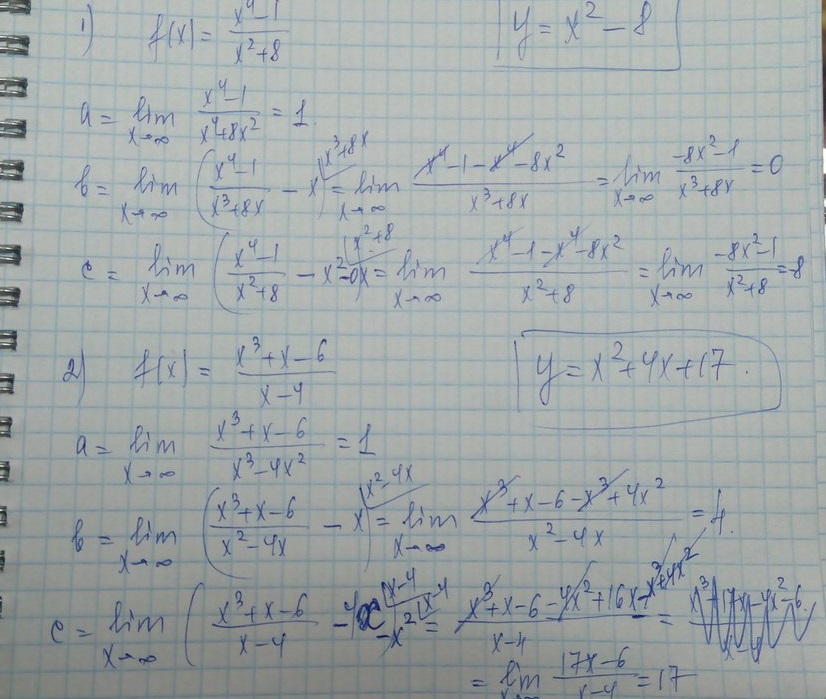 1) f(x) = (x⁴-1)/(x²+8)   y = x² - 8
a = lim x→∞ (x⁴-1)/(x⁴+8x²) = 1.
b = lim x→∞ ((x⁴-1)/(x³+8x) - x) x³+8x = lim x→∞ (x⁴-1-x⁴-8x²)/(x³+8x) = lim x→∞ (-8x²-1)/(x³+8x) = 0
c = lim x→∞ ((x⁴-1)/(x²+8) - x²-0x) x²+8 = lim x→∞ (x⁴-1-x⁴-8x²)/(x²+8) = lim x→∞ (-8x²-1)/(x²+8) = -8
2) f(x) = (x³+x-6)/(x-4)   y = x²+4x+17.
a = lim x→∞ (x³+x-6)/(x³-4x²) = 1
b = lim x→∞ ((x³+x-6)/(x²-4x) - x) x²-4x = lim x→∞ (x³+x-6-x³+4x²)/(x²-4x) = 4.
c = lim x→∞ ((x³+x-6)/(x-4) - 4x x-4 -x² x-4 = (x³+x-6-4x²+16x-x³+4x²)/(x-4) =
= lim x→∞ (17x-6)/(x-4) = 17